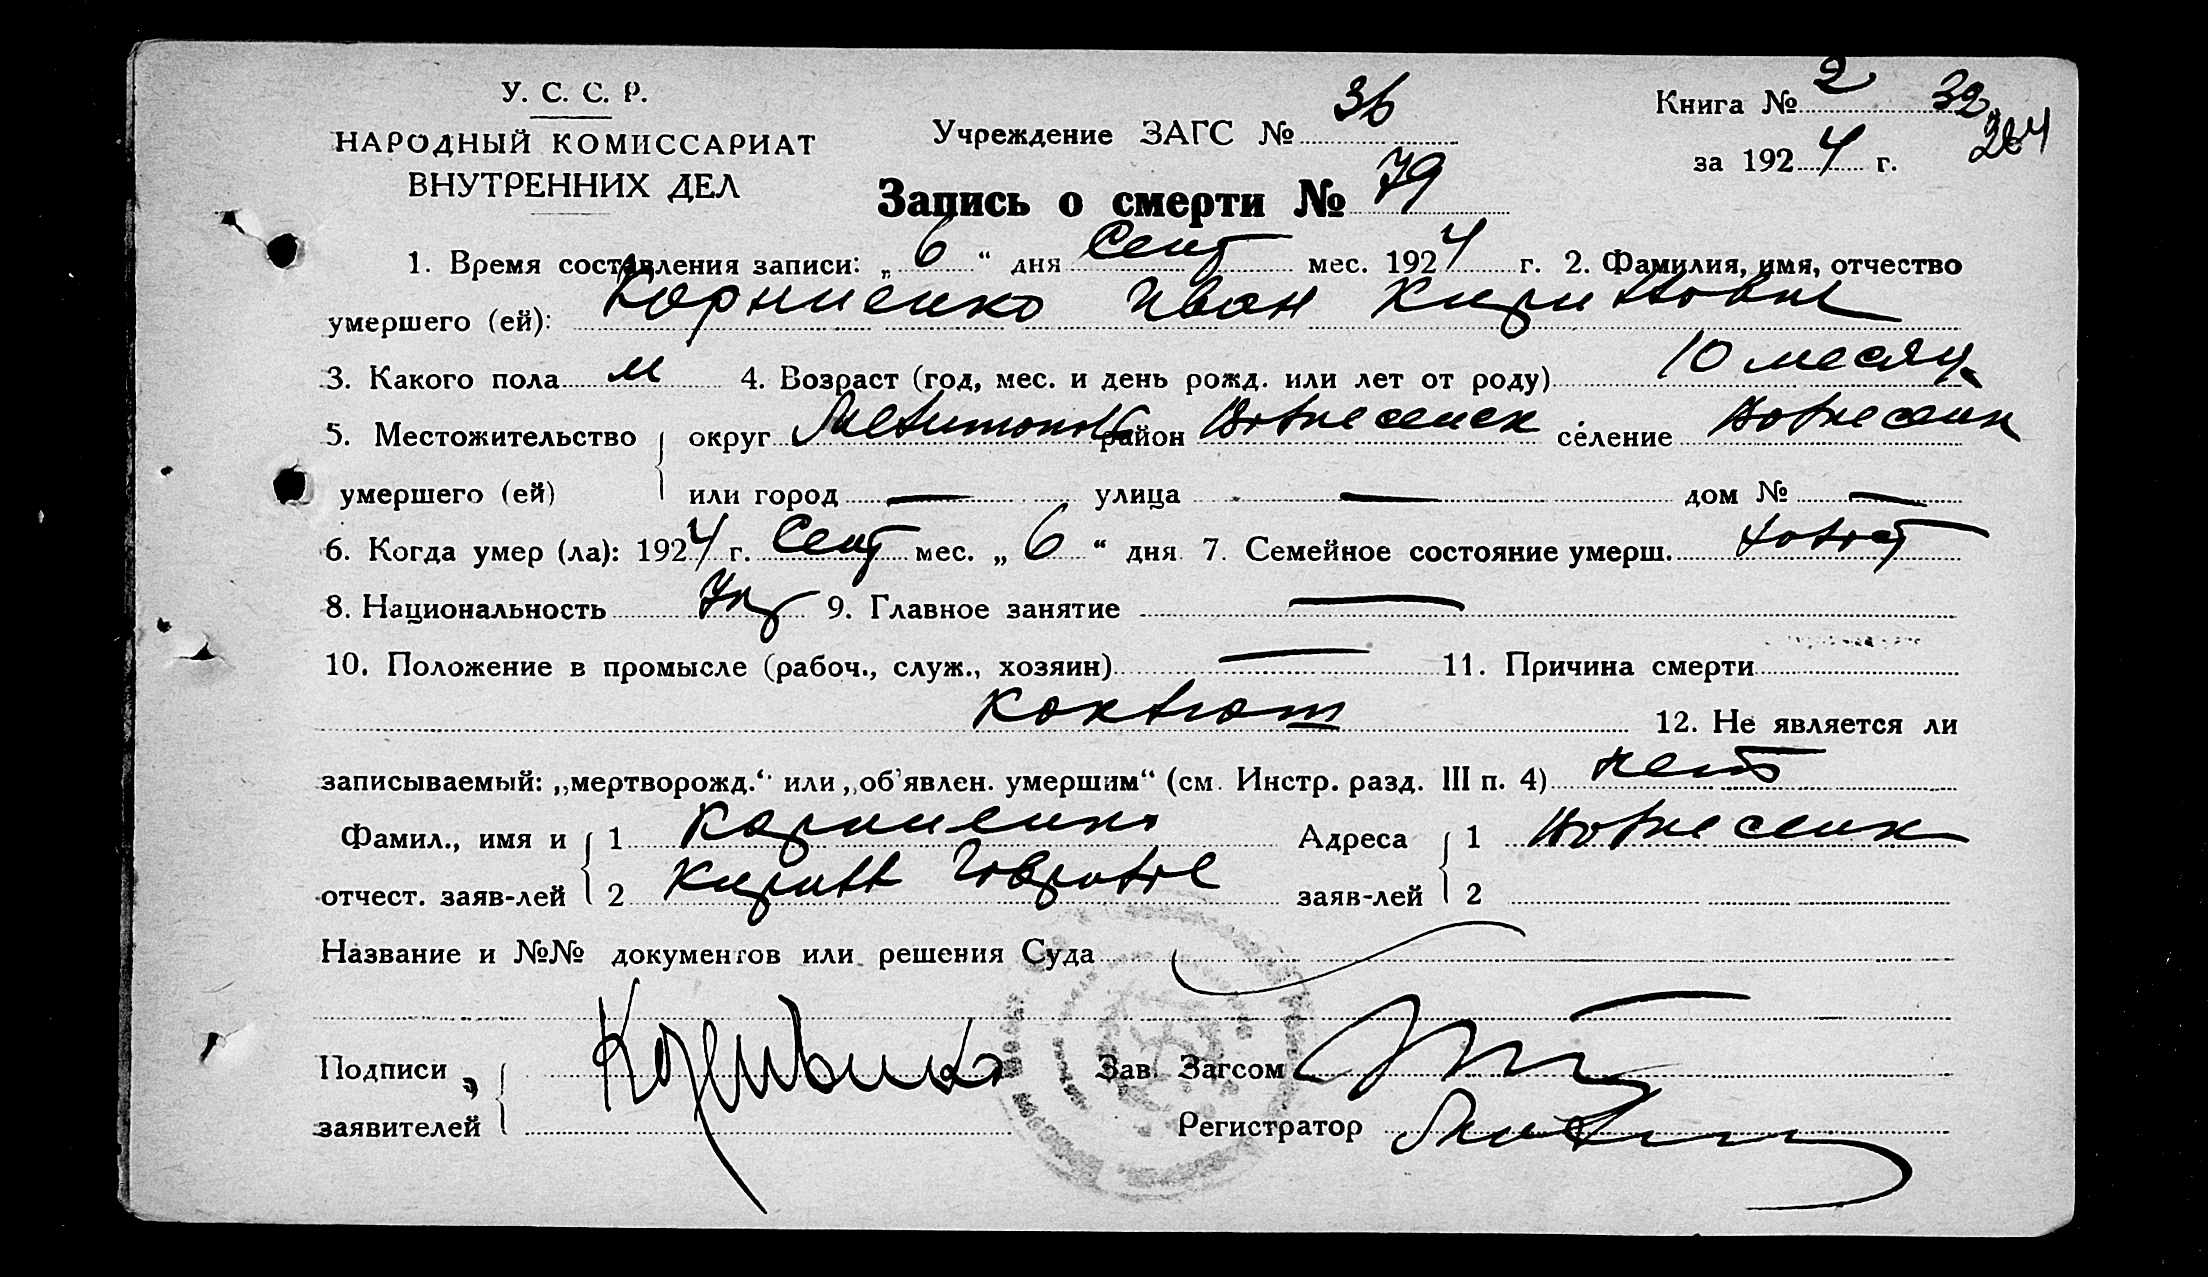 У. С. С. Р.
НАРОДНЫЙ КОМИССАРИАТ
ВНУТРЕННИХ ДЕЛ
Учреждение ЗАГС № 36
Книга № 2 32
264
за 1924 г.
Запись о смерти № 79
1. Время составления записи: „6“ дня Сент мес. 1924 г. 2. Фамилия, имя, отчество
умершего (ей): Корниенко Иван Кириллович
3. Какого пола м 4. Возраст (год, мес. и день рожд. или лет от роду) 10 месяц.
5. Местожительство округ Мелитополь район Вознесенск селение Вознесенк
умершего (ей) или город — улица — дом № —
6. Когда умер (ла): 1924 г. Сент мес. „6“ дня 7. Семейное состояние умерш. холост
8. Национальность Укр 9. Главное занятие —
10. Положение в промысле (рабоч., служ., хозяин) — 11. Причина смерти
коклюш 12. Не является ли
записываемый: „мертворожд.“ или „об'явлен. умершим“ (см. Инстр. разд. III п. 4) нет
Фамил., имя и 1 Корниенко Адреса 1 Вознесенк
отчест. заяв-лей 2 Кирилл заяв-лей 2
Название и №№ документов или решения Суда
Подписи Зав. Загсом
заявителей Регистратор